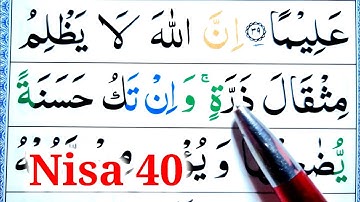 عَلِيْمًا ﴿۳۹﴾ اِنَّ اللّٰهَ لَا يَظْلِمُ
مِثْقَالَ ذَرَّةٍ ۚ وَاِنْ تَكُ حَسَنَةً
يُّضٰعِفْهَا وَيُؤْ
Nisa 40